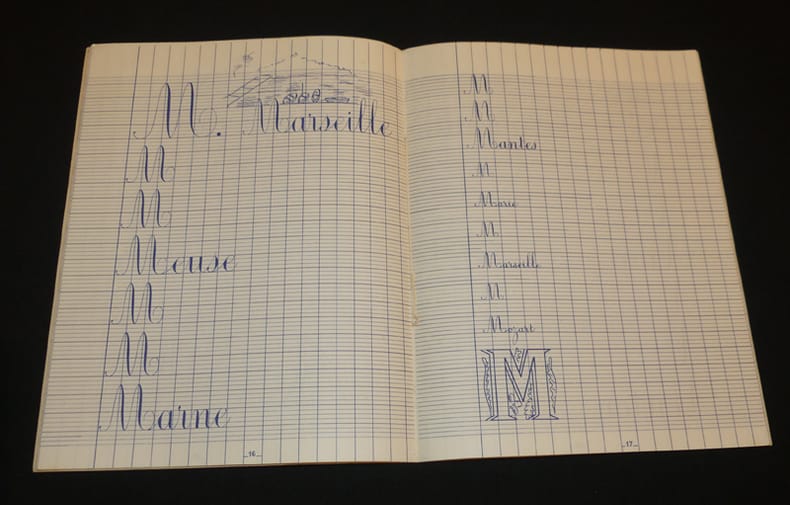 M. Marseille
M
M
Meuse
M
M
Marne
_16_
M
M
Mantes
M
Marie
M
Marseille
M
Mozart
M
_17_